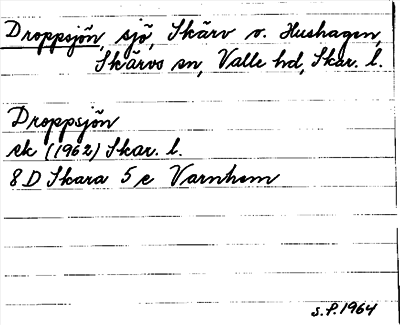 Droppsjön, sjö, Skärv o. Hushagen,
Skärvs sn, Valle hd, Skar. l.
Droppsjön
ek (1962) Skar. l.
8 D Skara 5 e Varnhem
S.P. 1964